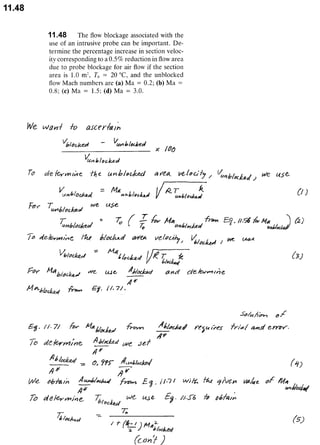 11.48
11.48 The flow blockage associated with the
use of an intrusive probe can be important. De-
termine the percentage increase in section veloc-
ity corresponding to a 0.5% reduction in flow area
due to probe blockage for air flow if the section
area is 1.0 m², T₀ = 20 °C, and the unblocked
flow Mach numbers are (a) Ma = 0.2; (b) Ma =
0.8; (c) Ma = 1.5; (d) Ma = 3.0.
We want to ascertain
(V_blocked − V_unblocked) / V_unblocked × 100
To determine the unblocked area velocity, V_unblocked, we use
V_unblocked = Ma_unblocked √(R T_unblocked k) (1)
For T_unblocked we use
T_unblocked = T₀ (T/T₀ for Ma_unblocked from Eq. 11.56 for Ma_unblocked) (2)
To determine the blocked area velocity, V_blocked, we use
V_blocked = Ma_blocked √(R T_blocked k) (3)
For Ma_blocked we use A_blocked/A* and determine
Ma_blocked from Eq. 11.71.
Solution of
Eq. 11.71 for Ma_blocked from A_blocked/A* requires trial and error.
To determine A_blocked/A* we set
A_blocked/A* = 0.995 A_unblocked/A* (4)
We obtain A_unblocked/A* from Eq. 11.71 with the given value of Ma_unblocked
To determine T_blocked we use Eq. 11.56 to obtain
T_blocked = T₀ / (1 + ((k−1)/2) Ma²_blocked) (5)
(con't)